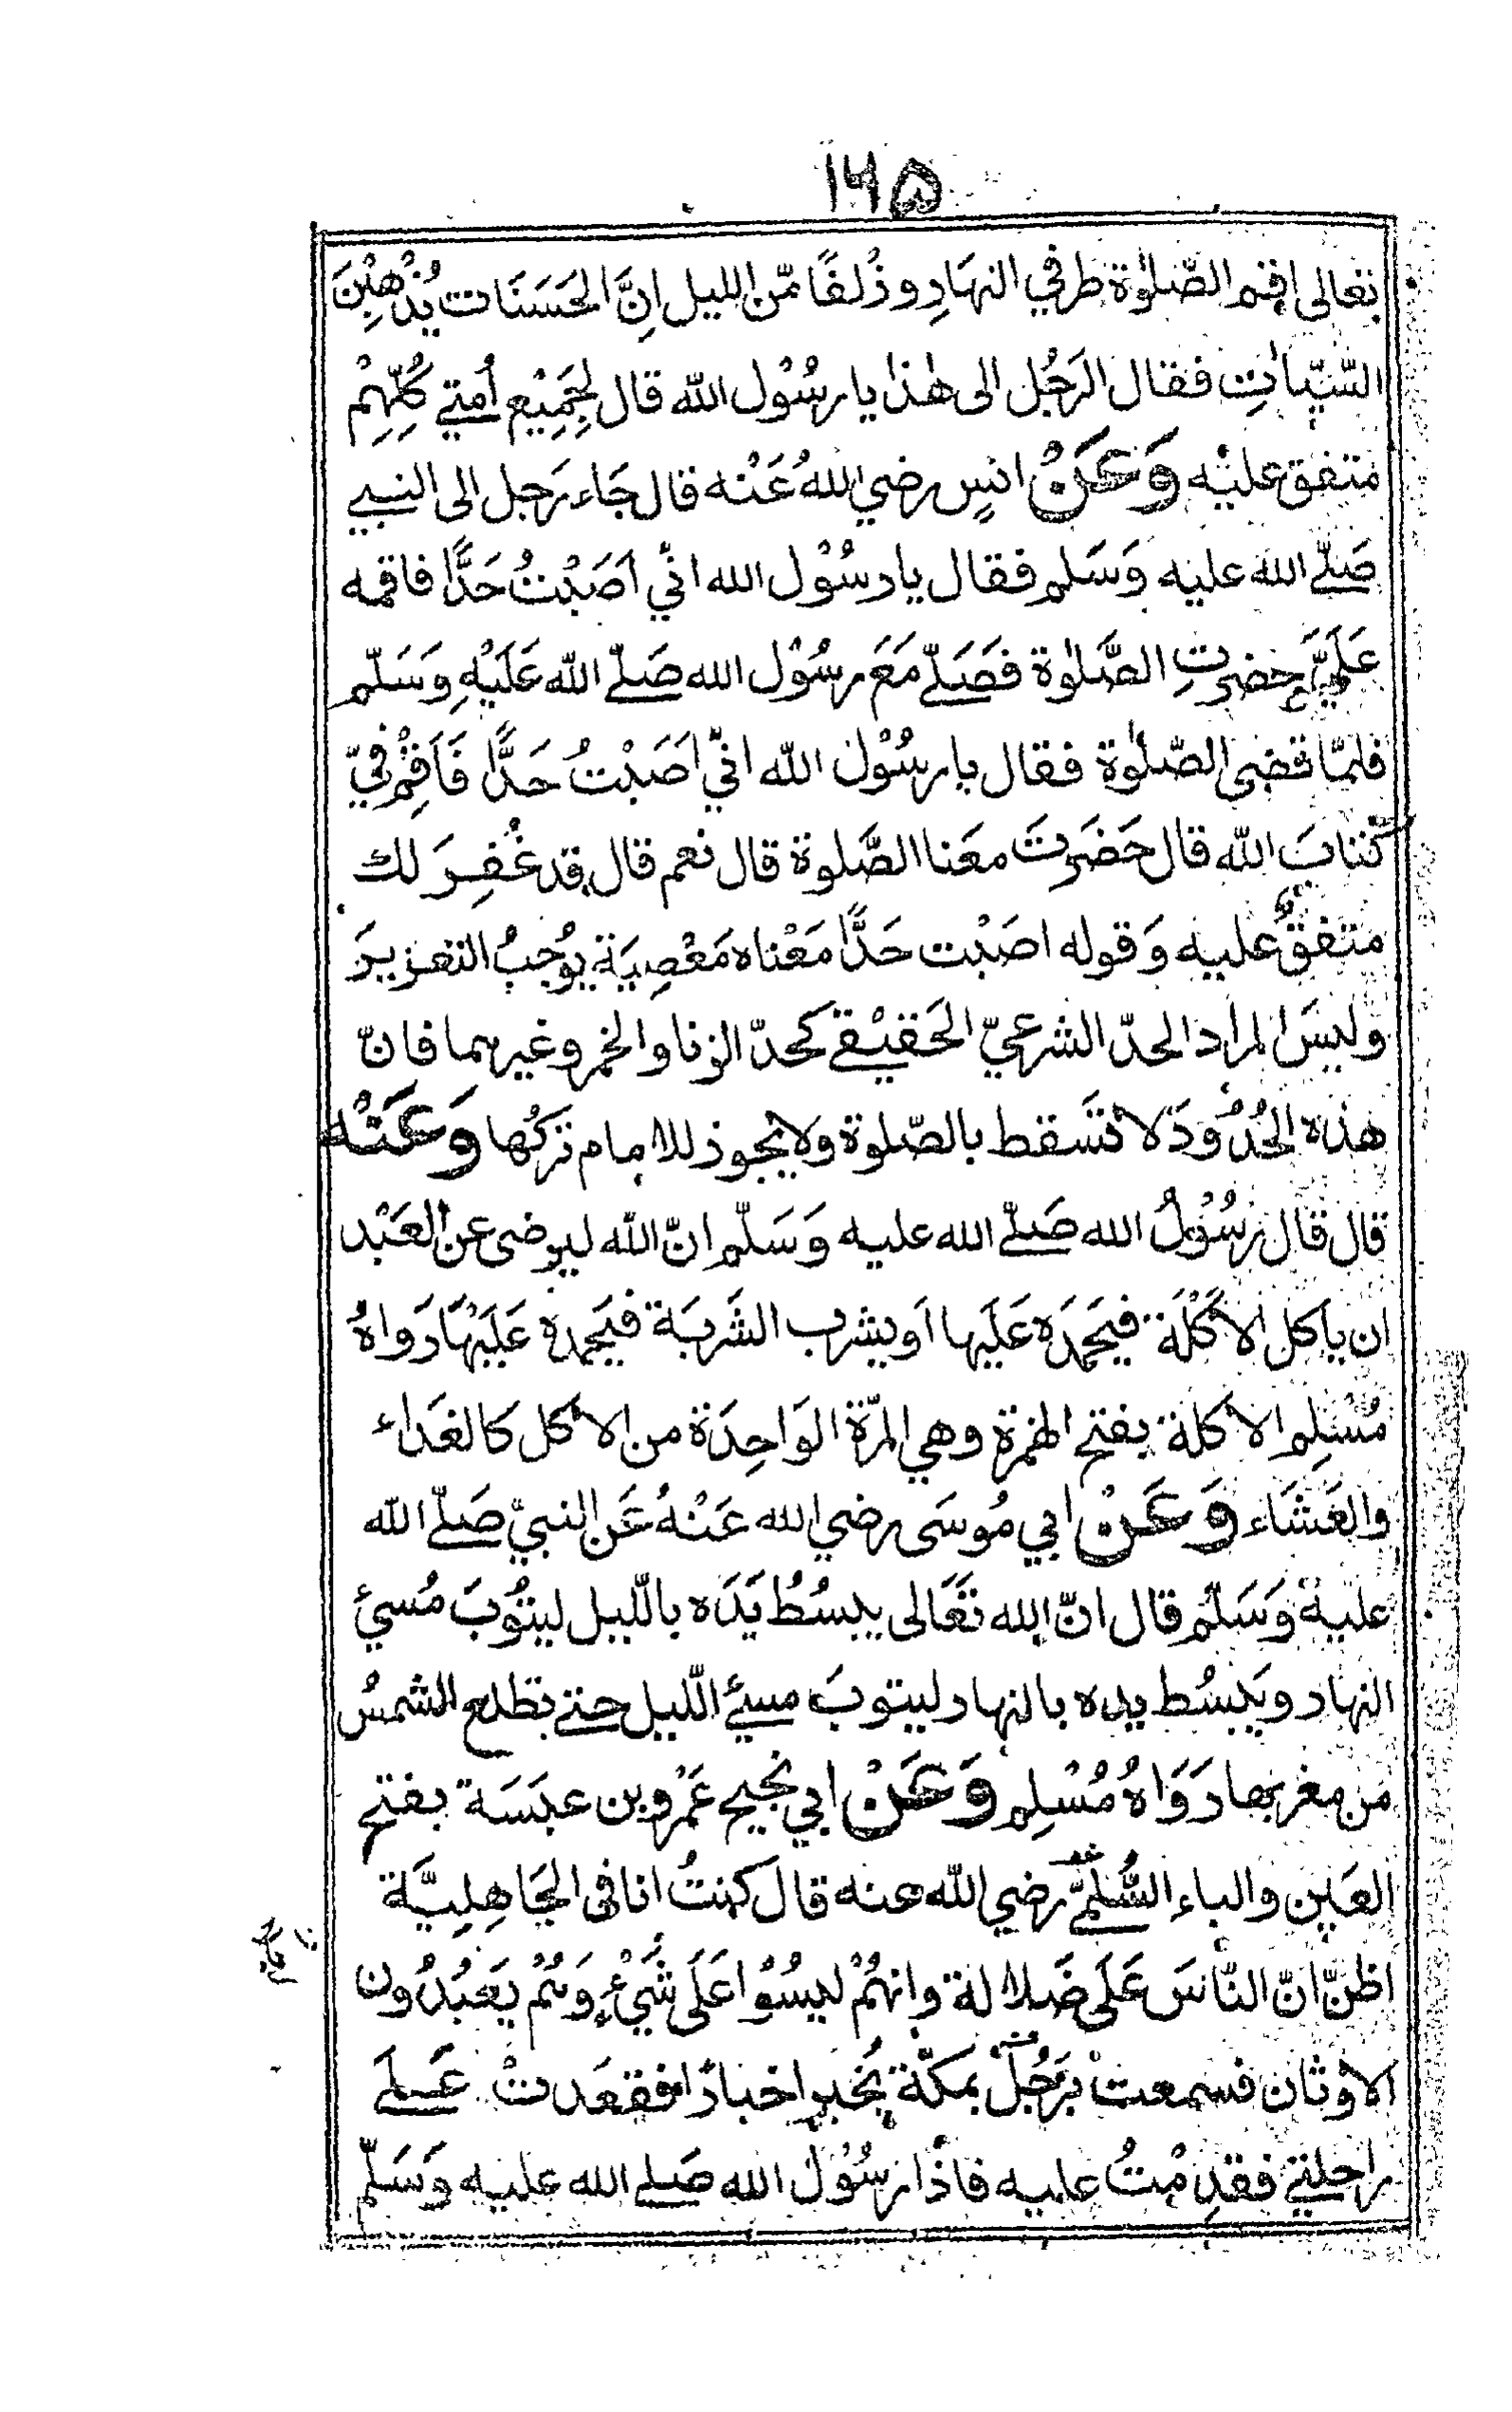 ۱۶۵
تعالى اقم الصّلوٰة طرفي النهَارِ وزُلفًا مّن الليل اِنَّ الحَسَنَات يُذْهِبْنَ
السَّيّئاتِ فقال الرَجُل الى هٰذا يا رسُوْل اللّه قال لِجَمِيْع أمتي كُلِّهِمْ
متفق عليْه وَعَنْ انسٍ رضي اللهُ عَنْه قال جَاء رَجل الى النبي
صَلّے الله عليه وَسَلم فقال يا رسُوْل الله انّي اَصَبْتُ حَدًّا فاقمه
عَلَيَّ وحضرتِ الصَّلوٰة فَصَلّے مَعَ رسُوْل الله صَلّے اللّه عَلَيْهِ وَسَلّم
فلمّا قضى الصّلوٰة فقال يا رسُوْل اللّه انّي اَصَبْتُ حَدًّا فَاَقِمْ فيّ
كتابَ اللّه قال حَضَرتَ معَنا الصَّلوة قال نعم قال قد غُفِرَ لك
متفقٌ عليه وَقوله اصَبْت حَدًّا مَعْناه مَعْصِيَة يوُجبُ التعزيرَ
وليسَ المراد الحدّ الشرعيّ الحَقيْقے كحدّ الزنا والخمر وغيرهما فانّ
هذه الحُدُوْدَ لا تَسقط بالصّلوة ولا يجوز للامام تركُها وَعَنْه
قال قال رَسُوْلُ الله صَلّے الله عليه وَسَلّم انّ اللّه ليرضى عن العَبْد
ان يأكل الاَكْلَة فيَحَمَدَه عَلَيها اَو يشرب الشَربَة فيَحمده عَلَيْهَا رَواهُ
مُسْلِم الاكلة بفتح الهمزة وهي المرّة الوَاحِدَة من الاكل كَالغَدَاء
والعَشَاء وَعَنْ ابي مُوسَى رضي الله عَنْهُ عَن النبيّ صَلّے اللّه
عليه وَسَلّم قال انّ الله تَعَالى يبسُطُ يَدَه بالّليل ليتُوبَ مُسيئ
النهار ويَبسُط يده بالنهار ليتوبَ مسيئ الّليل حتے تطلع الشمسُ
من مغربها رَوَاهُ مُسْلِم وَعَنْ ابي نجيح عَمْرو بن عبَسَة بفتح
العَين والباء السُّلَمّي رضي اللّه عنه قال كنتُ انا في الجَاهِلِيَّة
اظنّ انّ النّاسَ عَلَى ضَلالة وانهُمْ ليسُوْا عَلَى شَيْءٍ وَهُمْ يَعْبُدُون
الاوثان فسمعتْ برَجُلٍ بمكّة يُخبر اخبارًا فقعَدتْ عَلے
راحلتي فقدِمْتُ عليه فاذا رسُوْل الله صَلے الله عليه وَسَلّم